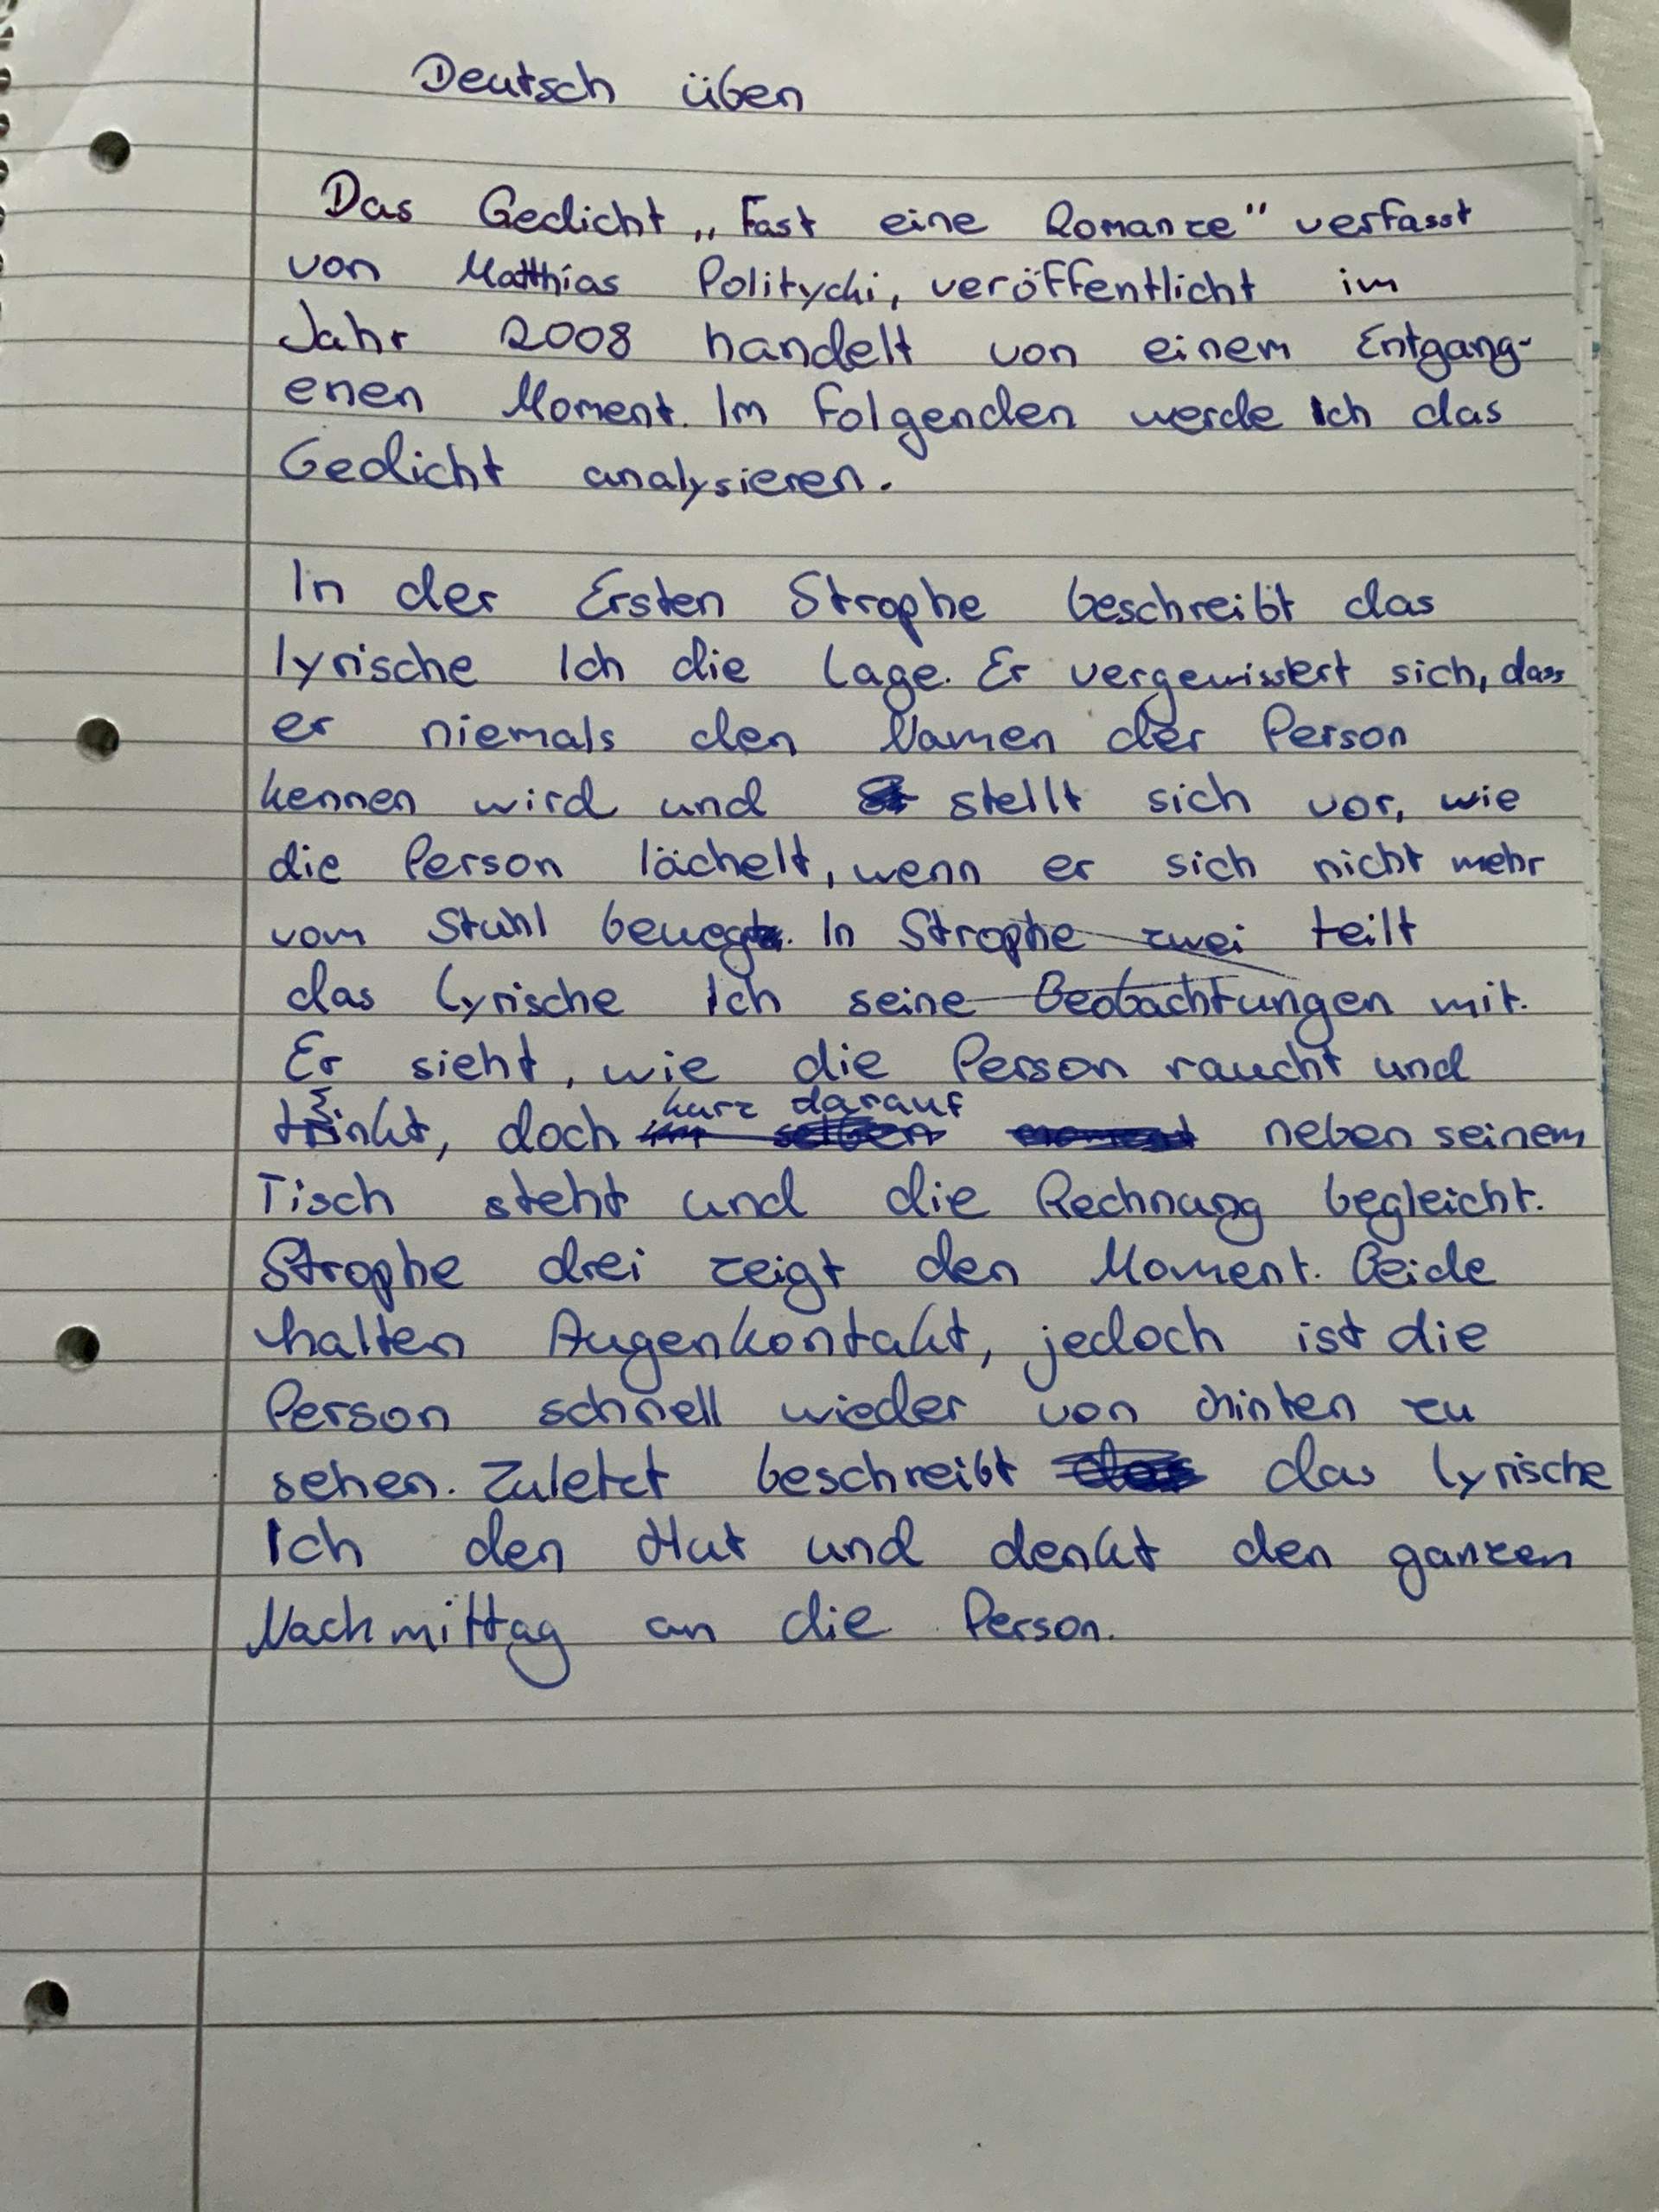 Deutsch üben
Das Gedicht „Fast eine Romanze" verfasst
von Matthias Politycki, veröffentlicht im
Jahr 2008 handelt von einem Entgang-
enen Moment. Im folgenden werde Ich das
Gedicht analysieren.
In der Ersten Strophe beschreibt das
lyrische Ich die Lage. Er vergewissert sich, dass
er niemals den Namen der Person
kennen wird und stellt sich vor, wie
die Person lächelt, wenn er sich nicht mehr
vom Stuhl bewegt. In Strophe zwei teilt
das lyrische Ich seine Beobachtungen mit.
Er sieht, wie die Person raucht und
trinkt, doch kurz darauf neben seinem
Tisch steht und die Rechnung begleicht.
Strophe drei zeigt den Moment. Beide
halten Augenkontakt, jedoch ist die
Person schnell wieder von hinten zu
sehen. Zuletzt beschreibt das lyrische
Ich den Hut und denkt den ganzen
Nachmittag an die Person.